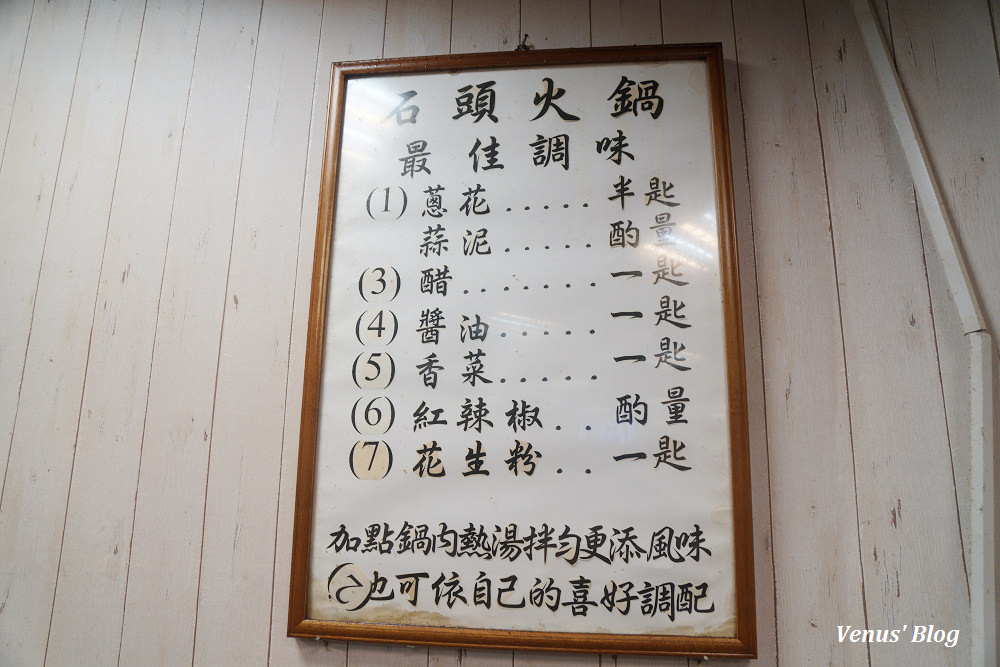 石頭火鍋
最佳調味
(1)蔥花.....半匙
蒜泥.....酌量
(3)醋.......一匙
(4)醬油......一匙
(5)香菜......一匙
(6)紅辣椒..酌量
(7)花生粉..一匙
加點鍋內熱湯拌勻更添風味
也可依自己的喜好調配
Venus' Blog